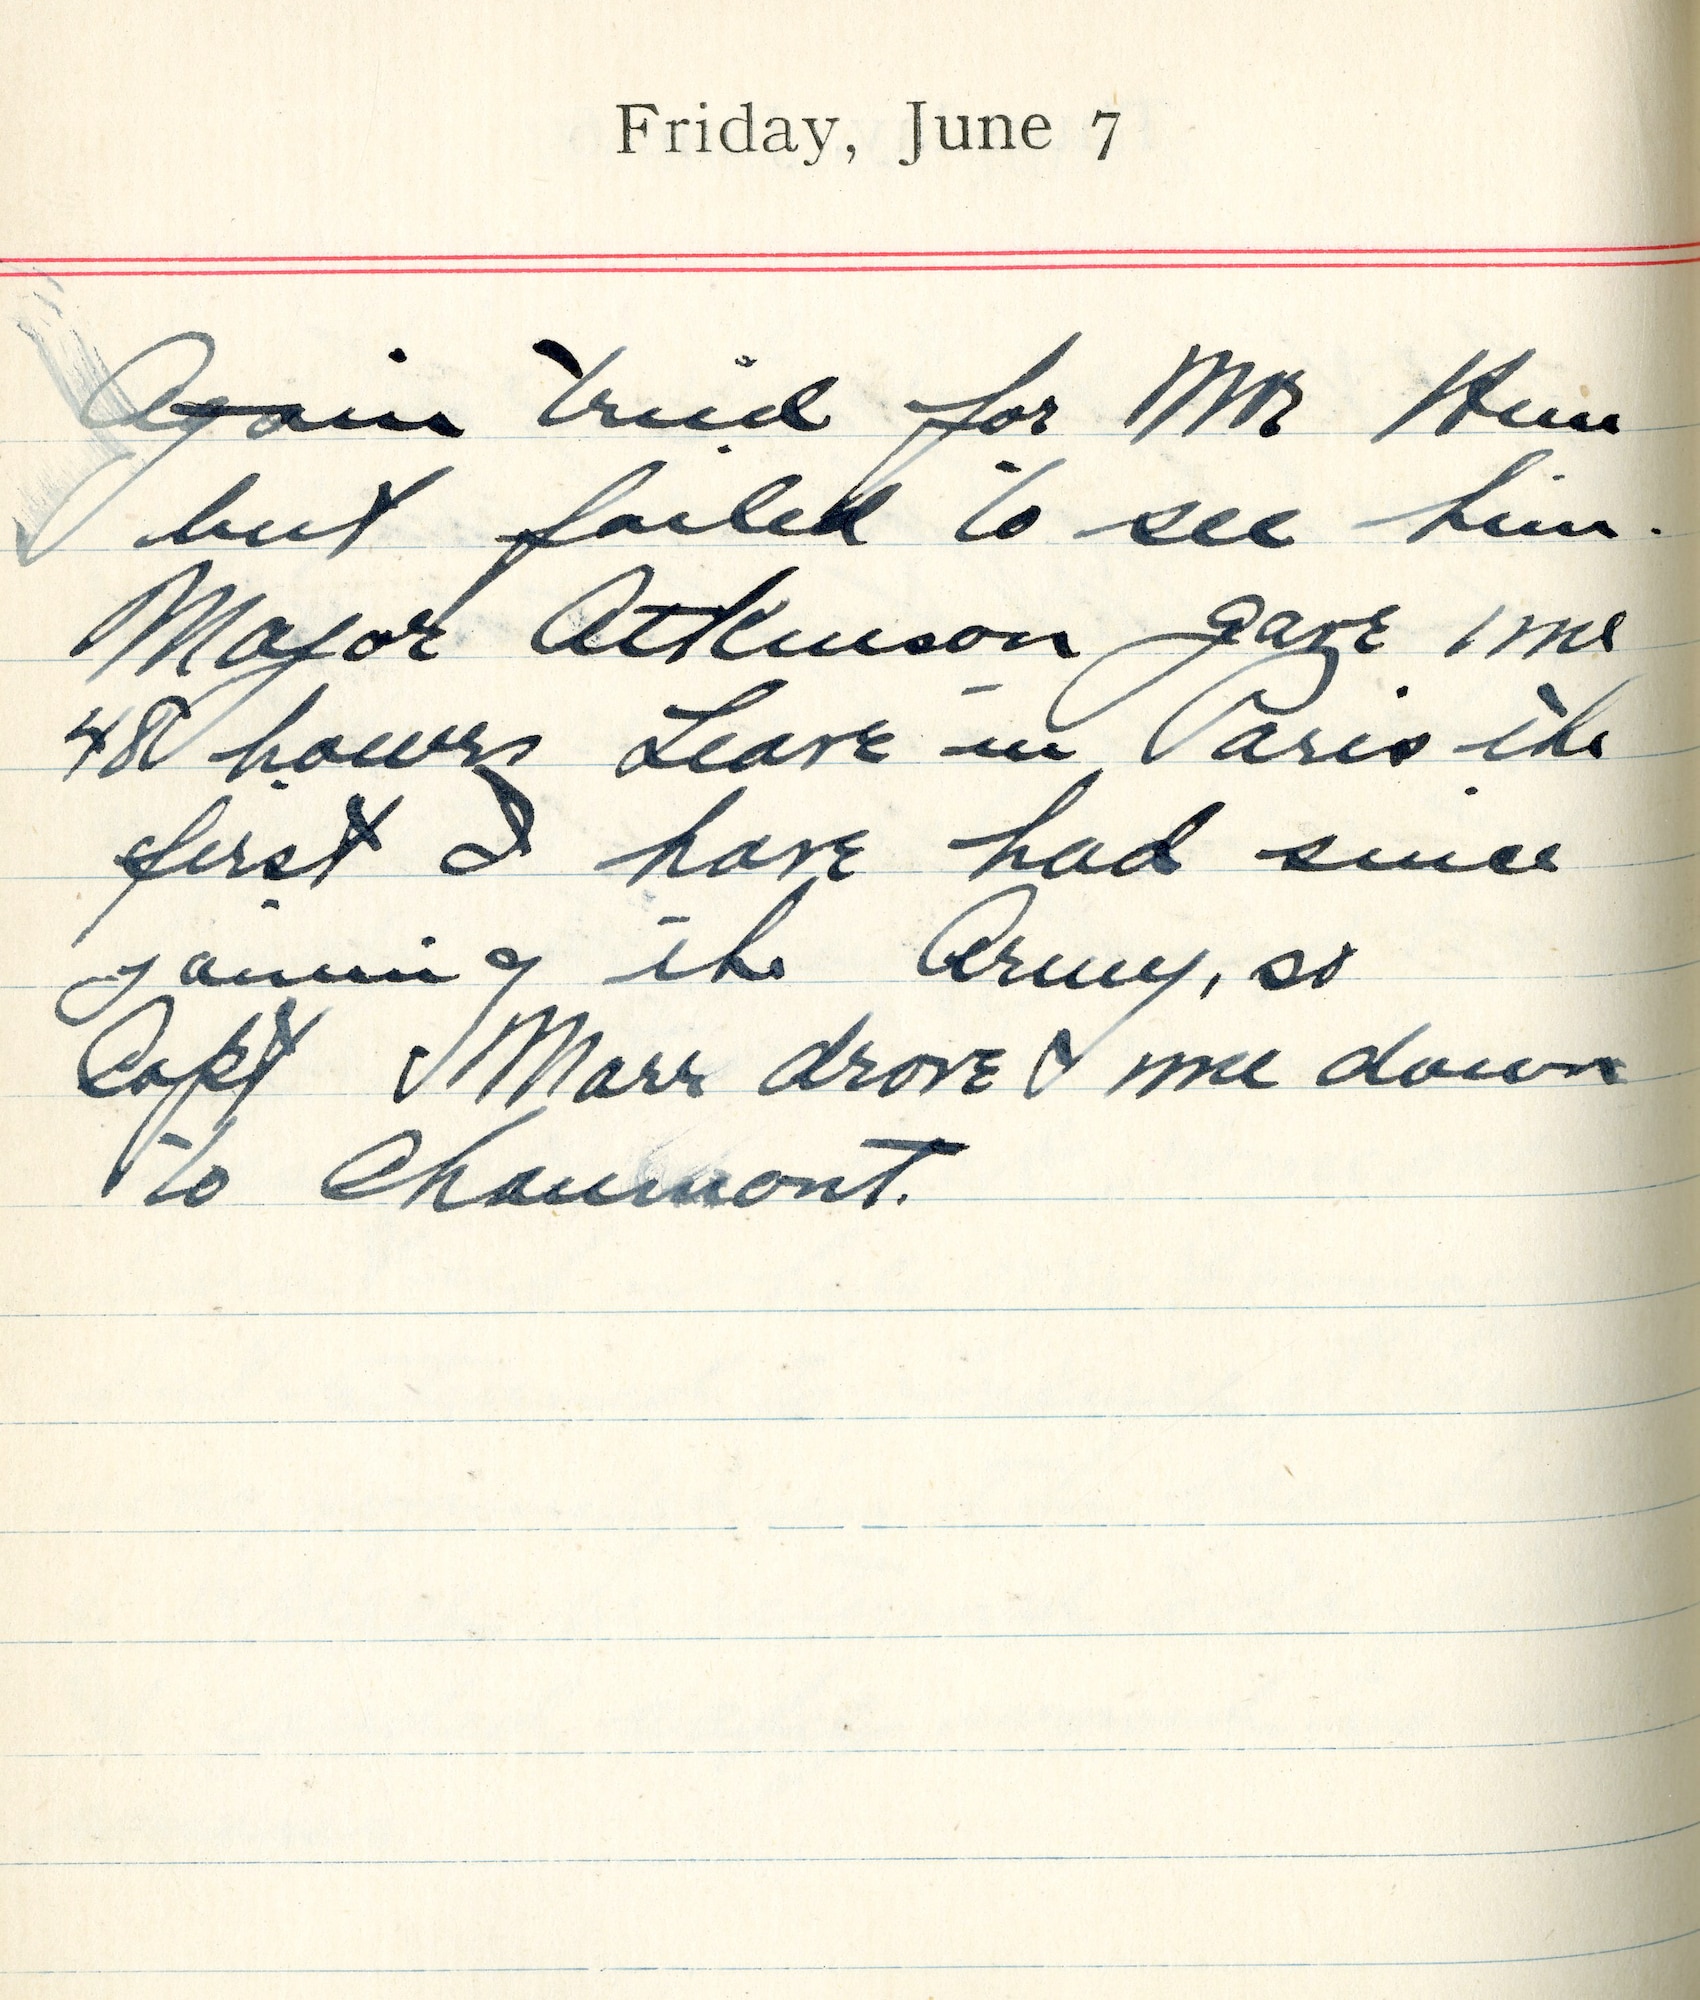 Friday, June 7
Again tried for Mr Hun
but failed to see him.
Major Atkinson gave me
48 hours Leave in Paris the
first I have had since
joining the Army, so
Capt Marr drove me down
to Chaumont.